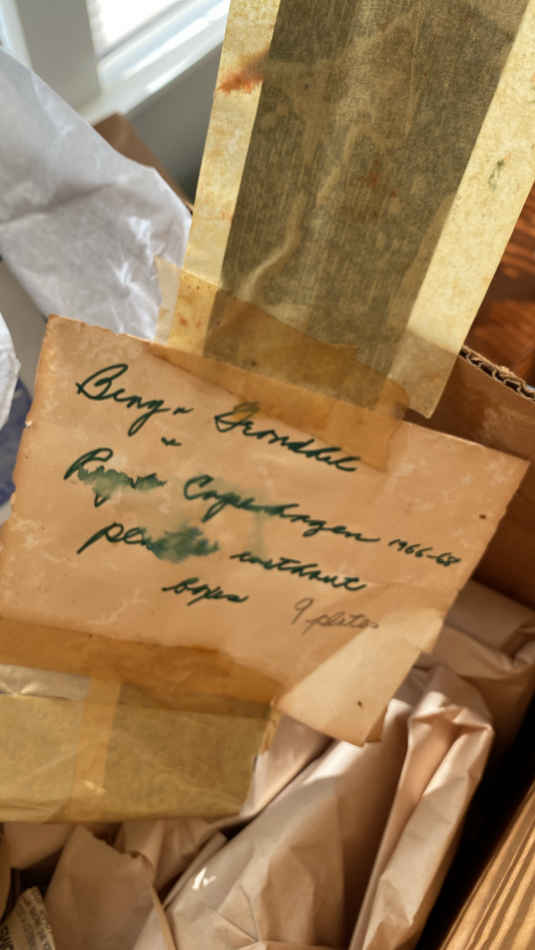 Bing &
Grondahl
&
Royal Copenhagen 1966-68
plates without
boxes 9 plates